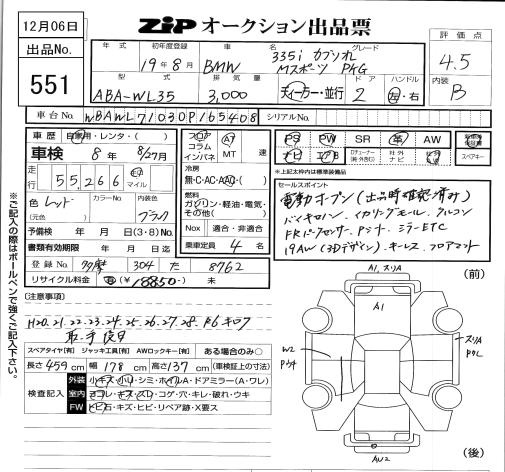 12月06日
ZIP オークション出品票
出品No.
551
年式
初年度登録
19年8月
車名
BMW
グレード
335i カブリオレ
Mスポーツ PKG
評価点
4.5
内装
B
型式
ABA-WL35
排気量
3,000
ディーラー・並行
ドア
2
ハンドル
左・右
車台No.
WBAWL71030P165408
シリアルNo.
車歴
自家用・レンタ・( )
車検 8年 8/27月
走行
55,266
キロ
マイル
色
レッド
(元色 )
カラーNo.
内装色
ブラック
予備検 年 月 日(3・8)No.
書類有効期限 年 月 日迄
登録No. 多摩 304 た 8762
リサイクル料金 有(¥18850-) 未
フロア
コラム
インパネ
A
MT
速
冷房
無・C・AC・AAC・( )
燃料
ガソリン・軽油・電気・
その他( )
Nox
適合・非適合
乗車定員 4 名
PS
PW
SR
革
AW
ナビ
エアB
TV
社外
ナビ
スペアキー
※上記太枠内は標準装備品
セールスポイント
電動オープン(出品時確認済み)
バイキセノン、イカリングモール、アルコン
FRパーセンサー、Pシート、ミラーETC
19AW(3Dデザイン)、キーレス、フロアマット
※ご記入の際はボールペンで強くご記入下さい。
注意事項
H20.21.22.23.24.25.26.27.28. R6キロク
取・手 後日
スペアタイヤ[有] ジャッキ工具[有] AWロックキー[有] ある場合のみ○
長さ459cm 幅178cm 高さ137cm (車検証上の寸法)
検査記入
外装
小キズ・小凹・シミ・ホイルA・ドアミラー(A・ワレ)
室内
ヨゴレ・キズ・スレ・コゲ・穴・キレ・破れ・ウキ
FW
トビ石・キズ・ヒビ・リペア跡・X要ス
(前)
A1.スリA
A1
W2
Pウチ
スリA
AW2
(後)